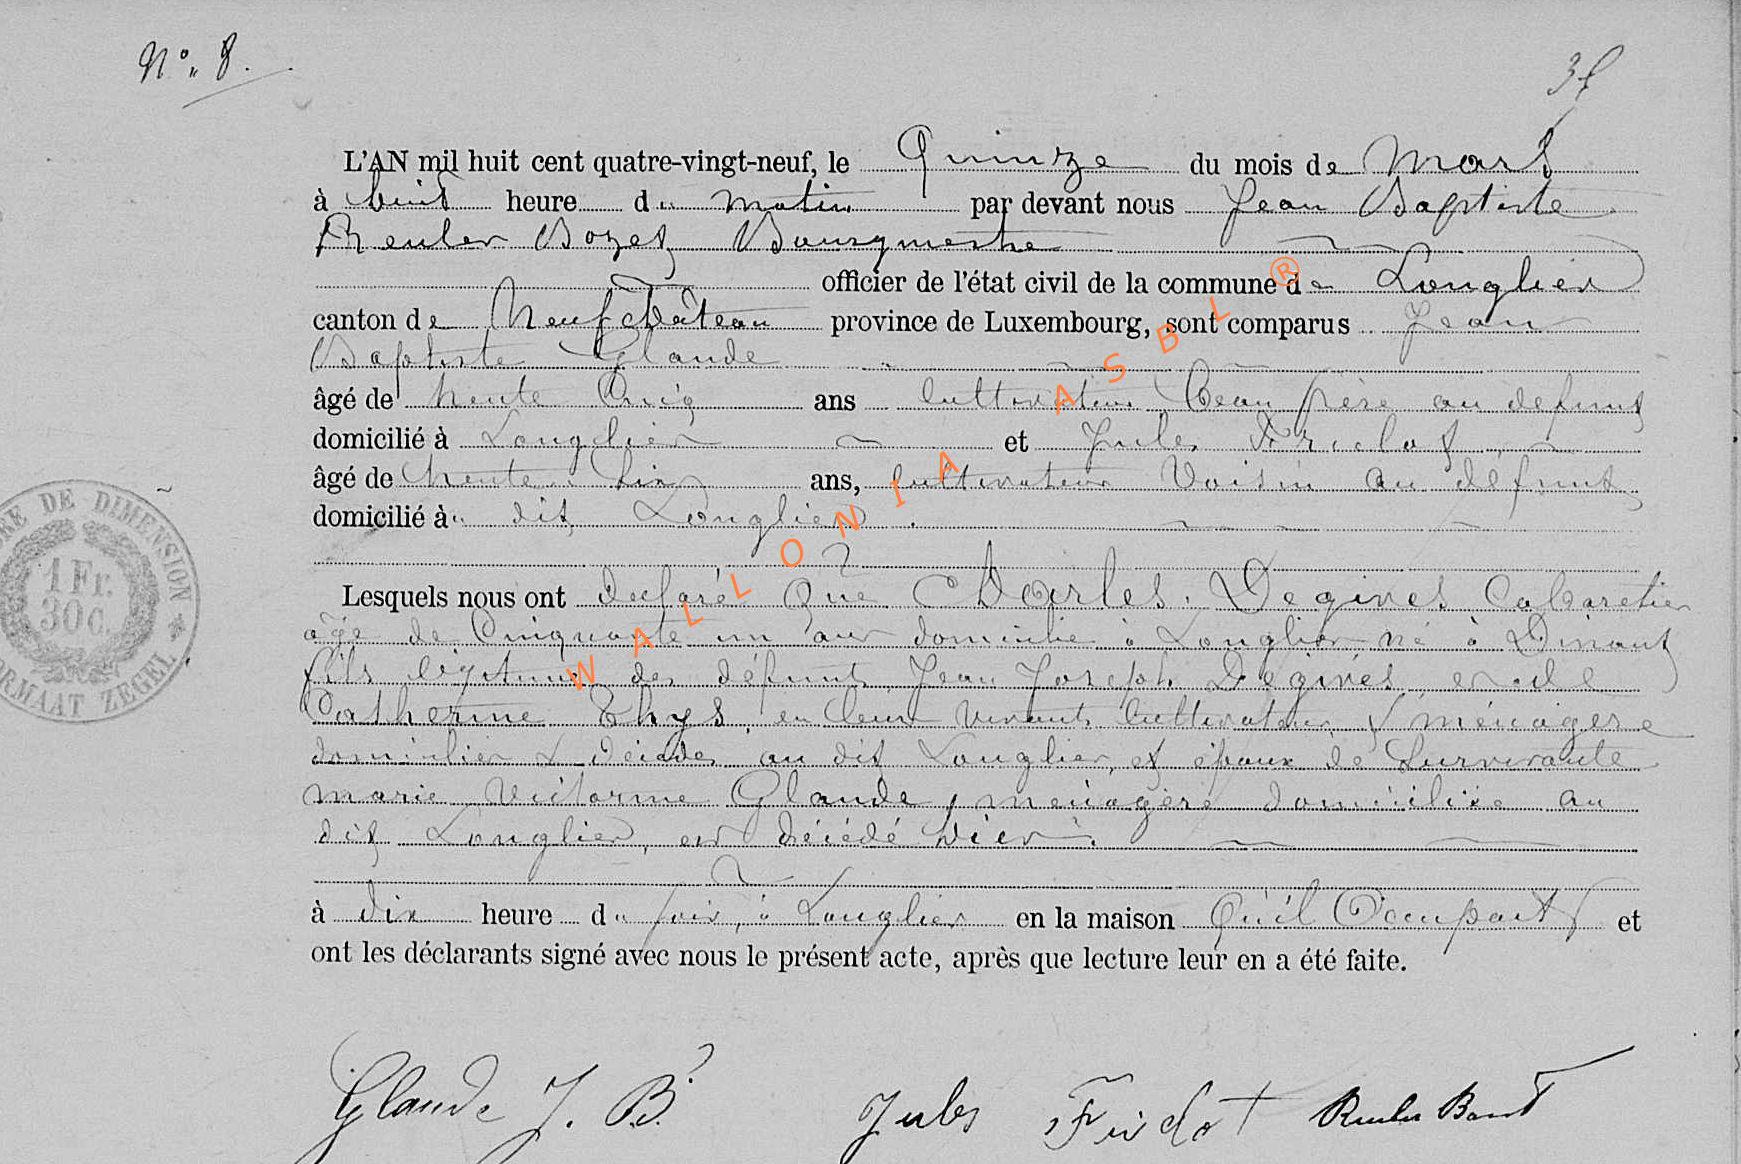 N° 8.
L'AN mil huit cent quatre-vingt-neuf, le Quinze du mois de Mars
à huit heure du matin par devant nous Jean Baptiste
Reuler Bozet Bourgmestre
officier de l'état civil de la commune de Longlier
canton de Neufchâteau province de Luxembourg, sont comparus Jean
Baptiste Glaude
âgé de trente Cinq ans Cultivateur Beau frère au defunt
domicilié à Longlier et Jules
âgé de trente Six ans, Cultivateur Voisin au défunt
domicilié à dit Longlier.
Lesquels nous ont declaré Que Charles Deginès Cabaretier
âgé de Cinquante un ans domicilié à Longlier né à Dinant
fils légitime des défunts Jean Joseph Deginés et de
Catherine Thys, en leur vivants Cultivateur & ménagère
domicilier & décédés au dit Longlier, et époux de Survivante
Marie Victorine Glaude, ménagère domiciliée au
dit Longlier, est décédé hier.
à dix heure du soir, à Longlier en la maison Qu'il Occupait et
ont les déclarants signé avec nous le présent acte, après que lecture leur en a été faite.
Glaude J. B. Jules
TIMBRE DE DIMENSION
1 Fr.
30 c.
FORMAAT ZEGEL
WALLONIA ASBL ®